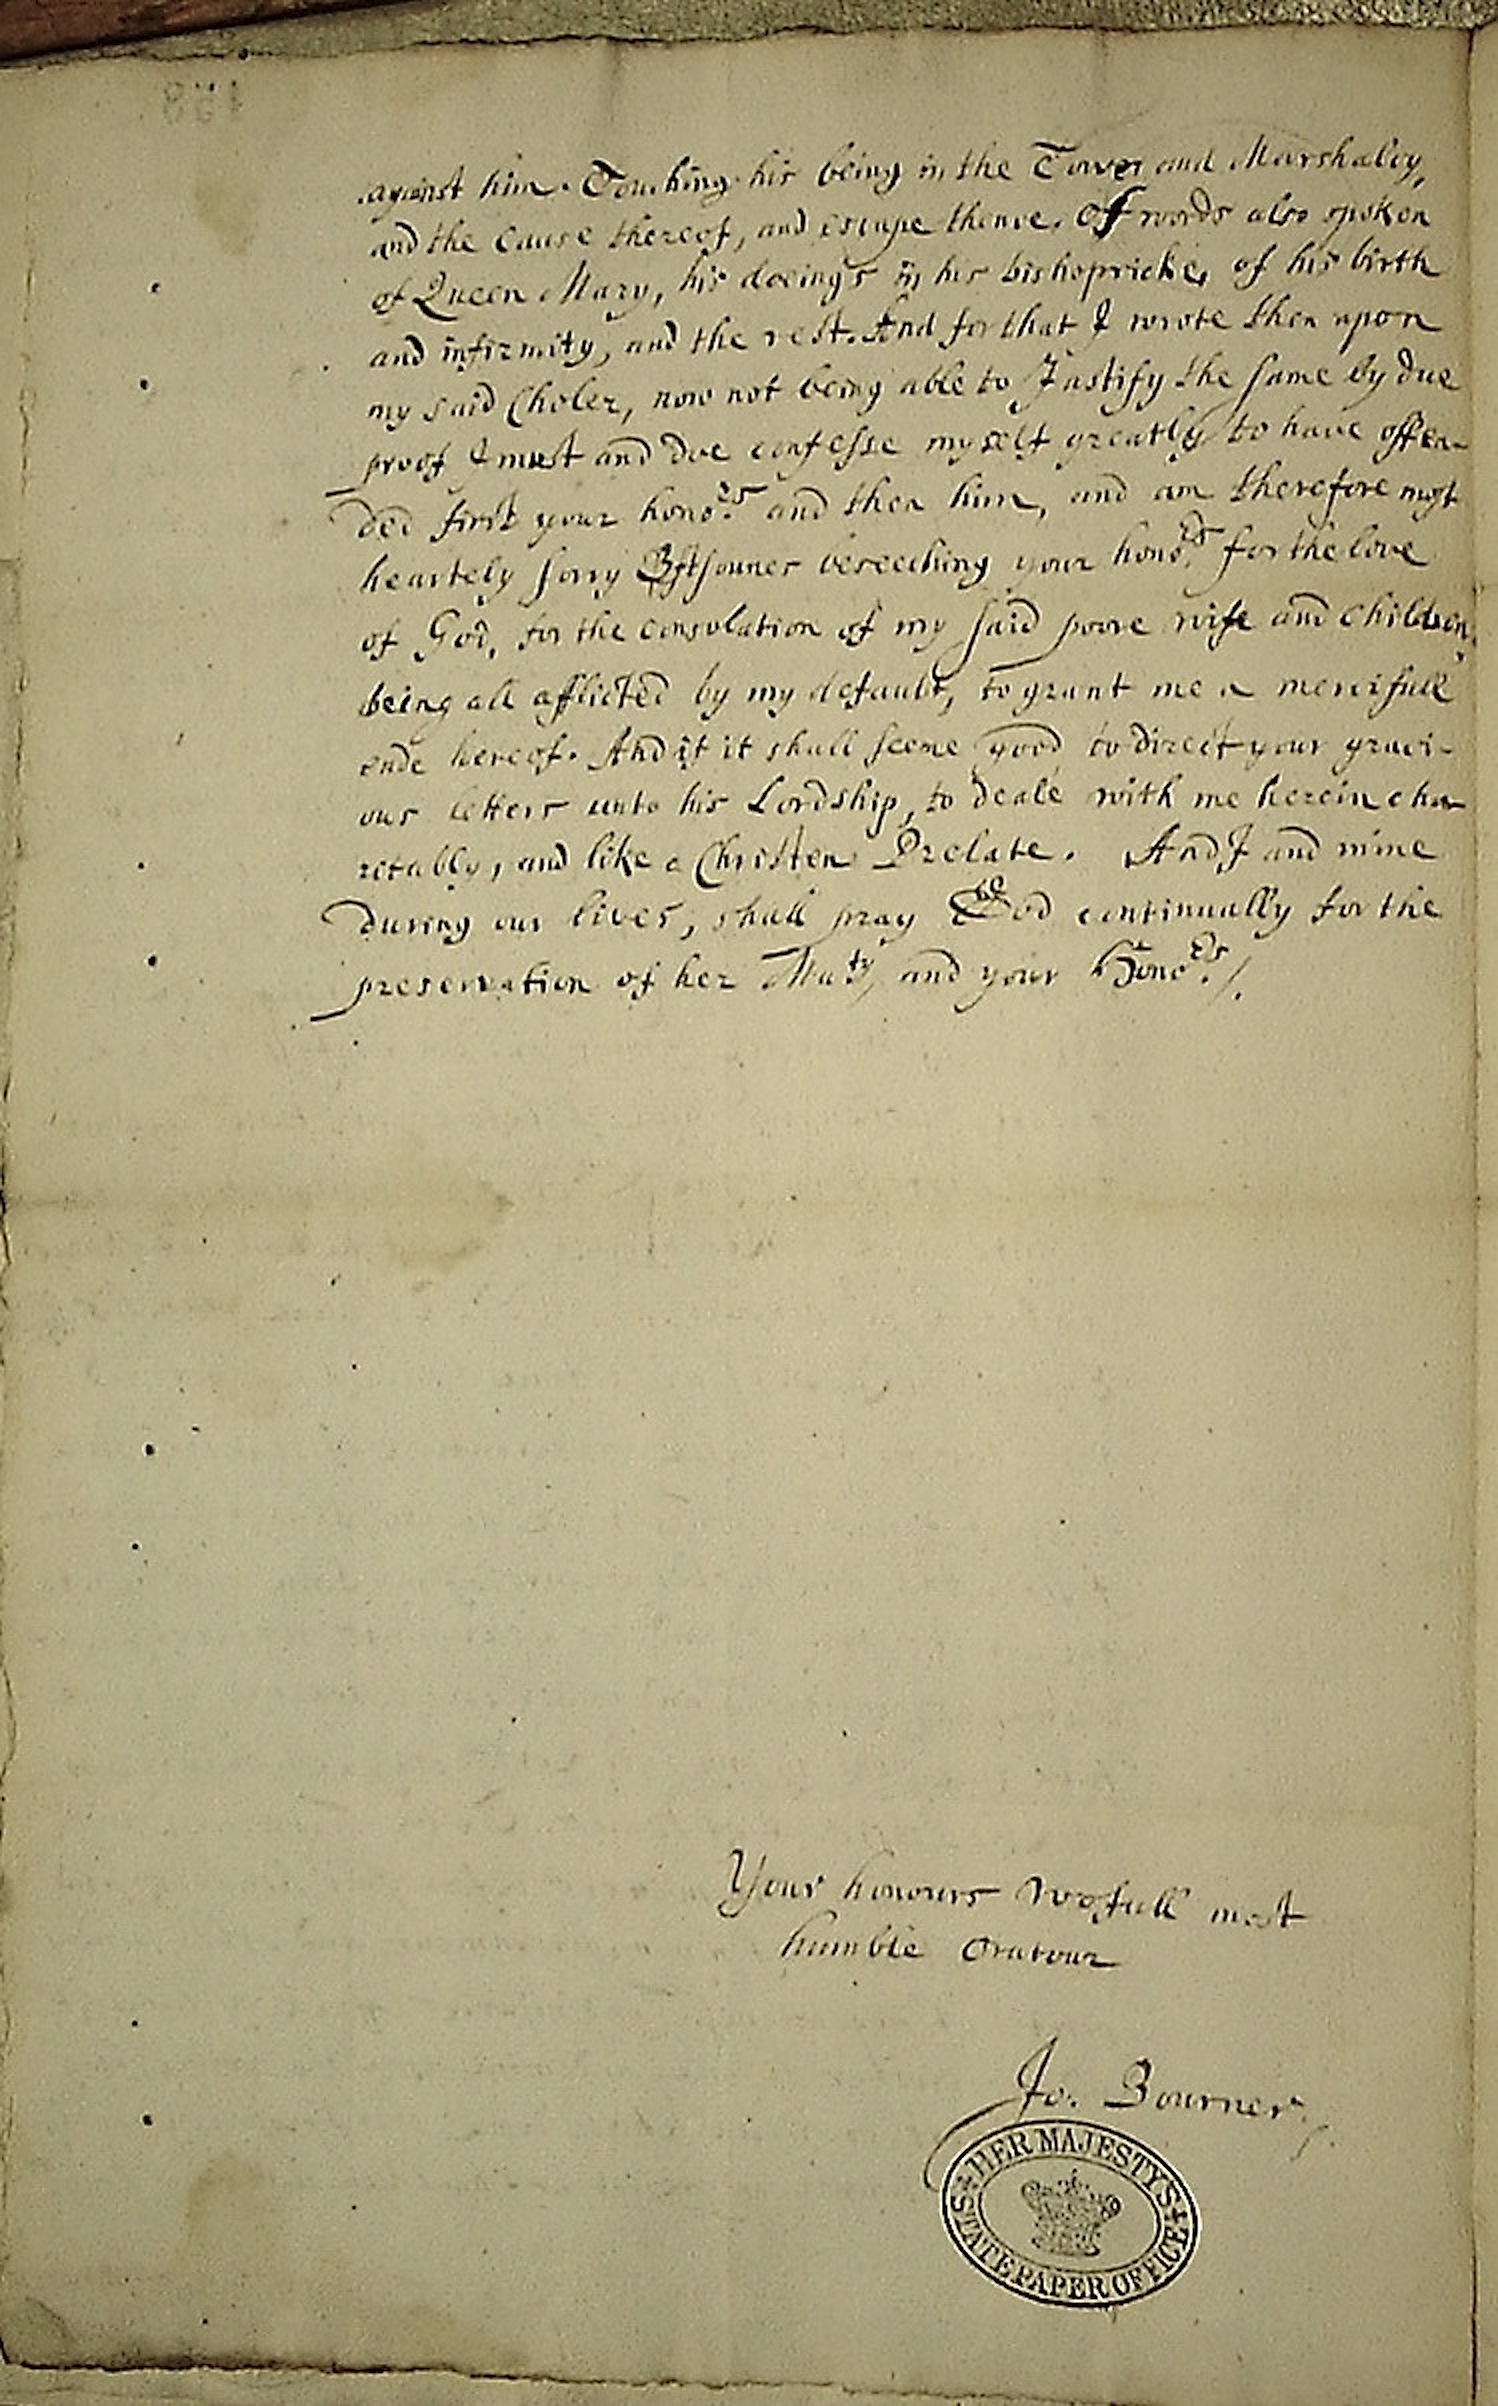 against him. Touching his being in the Tower and Marshalcy,
and the cause thereof, and escape thence. Of words also spoken
of Queen Mary, his doeings in his bishopricke, of his birth
and infirmity, and the rest. And for that I wrote then upon
my said Choler, now not being able to Justify the same by due
proof I must and doe confesse my self greatly to have offen-
ded first your hono.rs and then him, and am therefore most
heartely sorry Eftsounes beseeching your hono.rs for the love
of God, for the consolation of my said poore wife and children,
being all afflicted by my default, to grant me a mercifull
ende hereof. And if it shall seeme good to direct your graci-
ous letters unto his Lordship, to deale with me herein cha-
retably, and like a Christen Prelate. And I and mine
during our lives, shall pray God continually for the
preservation of her Ma.ty and your Hono.rs /.
Your honours wofull most
humble Oratour
Jo. Bourner
HER MAJESTY'S
STATE PAPER OFFICE